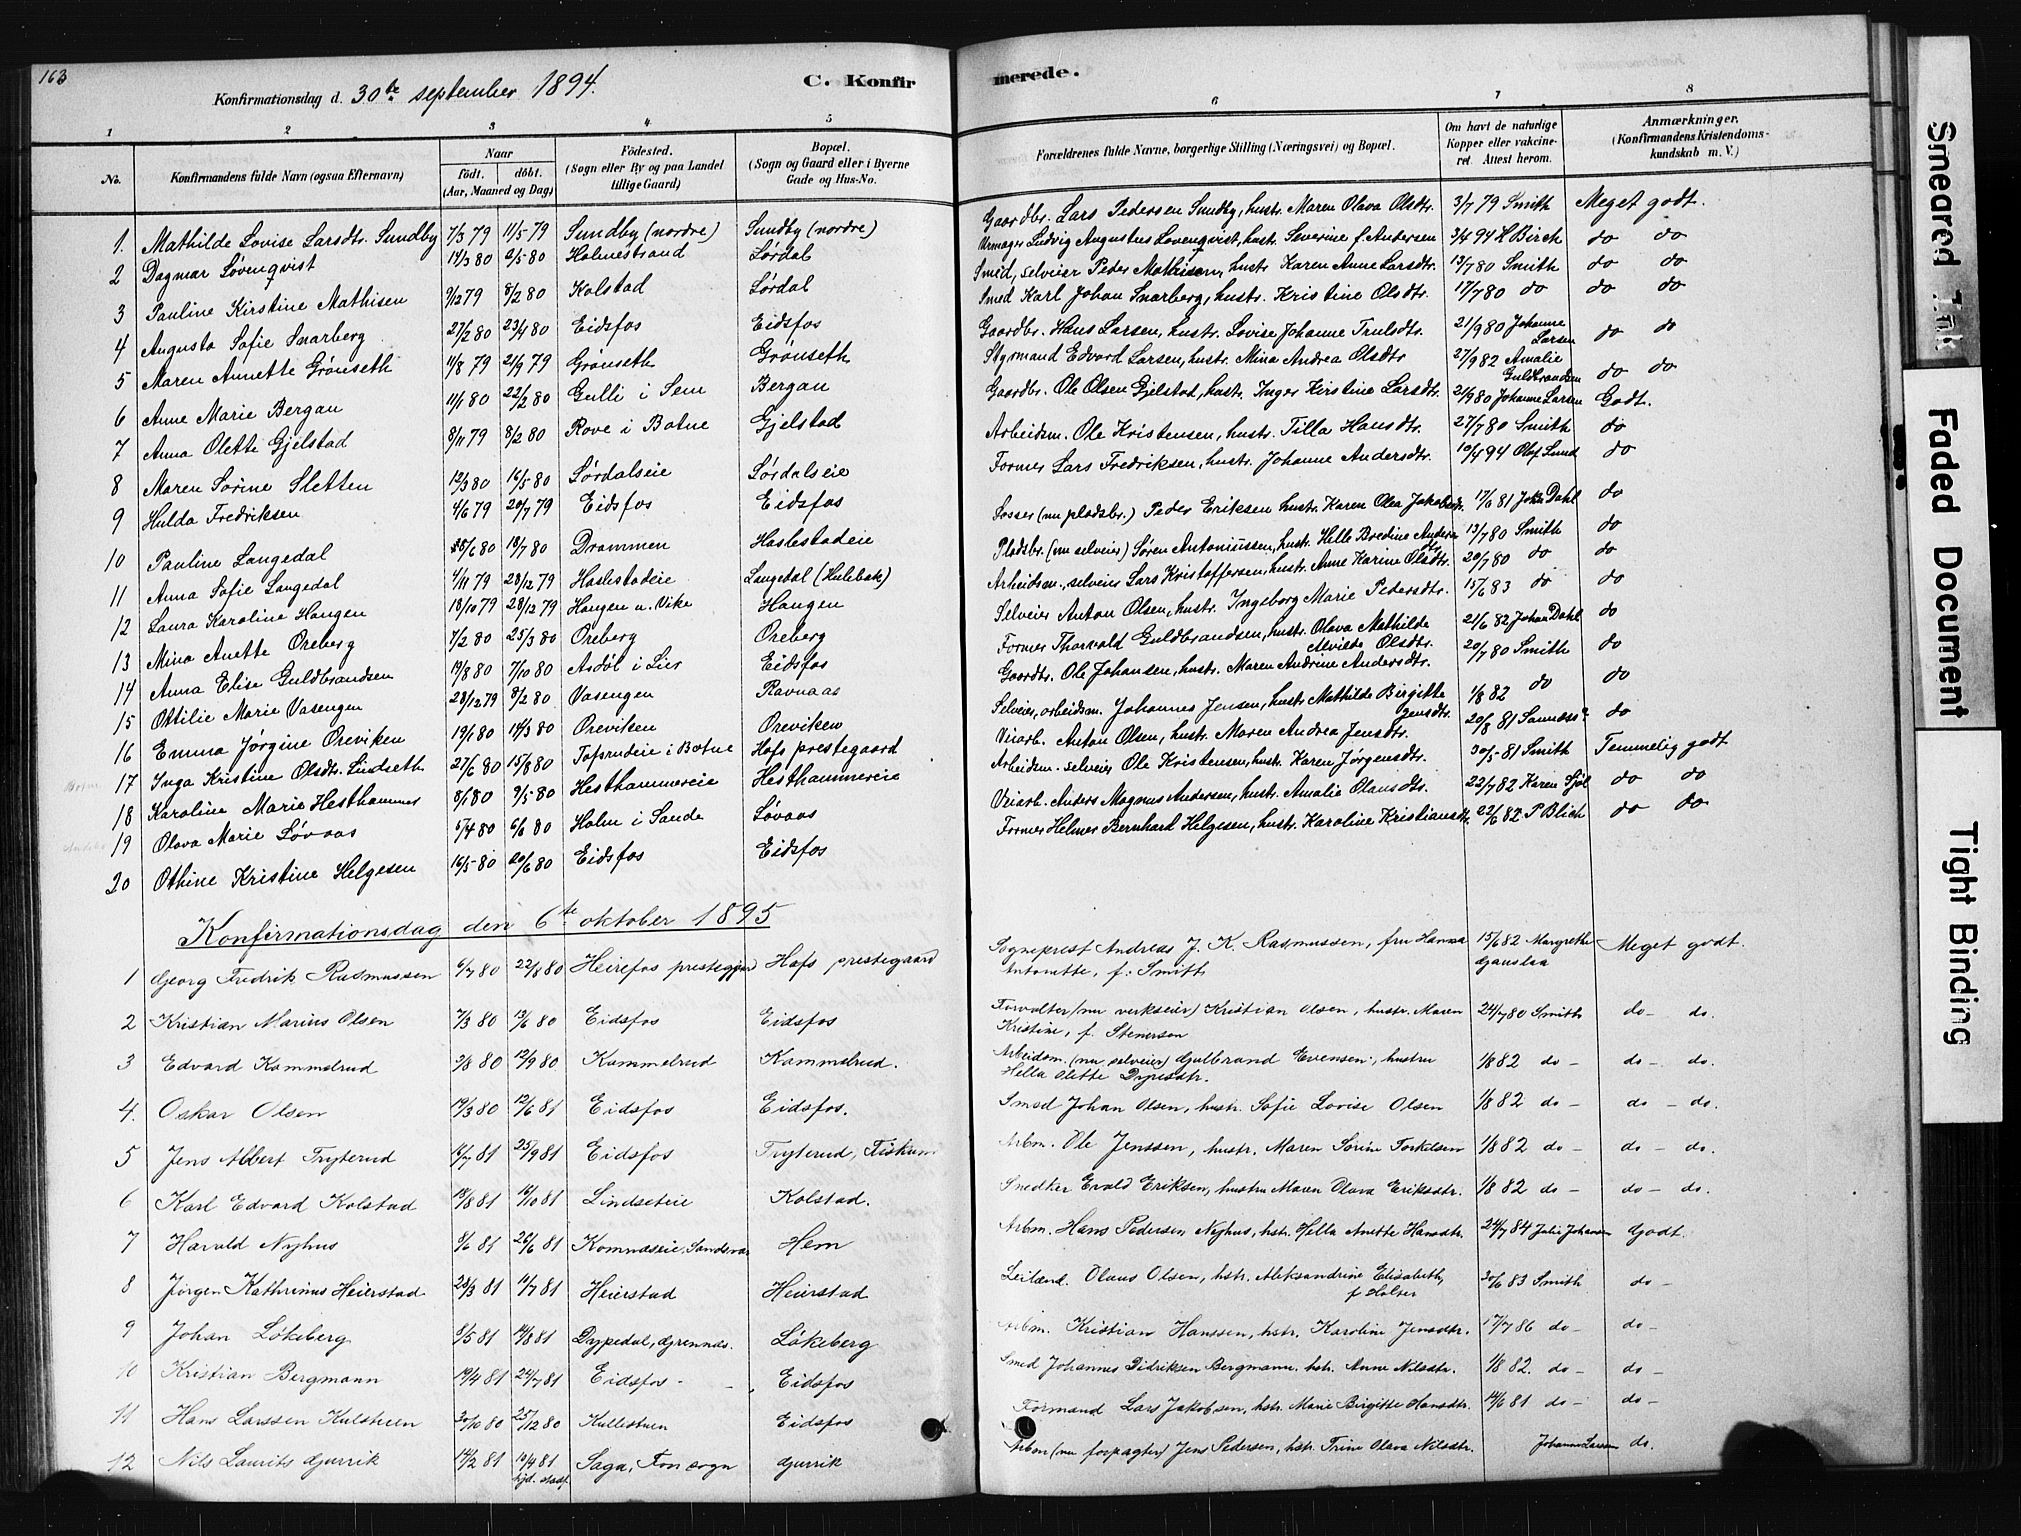 163
Konfirmationsdag d. 30te september 1894.
C. Konfirmerede.
1 2 3 4 5 6 7 8
No.
Konfirmandens fulde Navn (ogsaa Efternavn)
Naar
födt. döbt.
(Aar, Maaned og Dag)
Födested.
(Sogn eller By og paa Landet
tillige Gaard)
Bopæl.
(Sogn og Gaard eller i Byerne
Gade og Hus-No.
Forældrenes fulde Navne, borgerlige Stilling (Næringsvei) og Bopæl.
Om havt de naturlige
Kopper eller vakcine-
ret. Attest herom.
Anmærkninger.
(Konfirmandens Kristendoms-
kundskab m. V.)
1. Mathilde Lovise Larsdtr. Sundby 7/3 79 11/5 79 Sundby (nordre) Sundby (nordre) Gaardbr. Lars Pedersen Sundby, hustr. Maren Olava Olsdtr. 3/7 79 Smith Meget godt.
2 Dagmar Lövenqvist 14/3 80 2/5 80 Holmestrand Lørdal Urmager Ludvig Augustus Lovenqvist, hustr. Severine f. Andersen 3/4 94 H Birch do do
3 Pauline Kirstine Mathisen 9/12 79 8/2 80 Kolstad Lørdal Smed, selveier Peder Mathisen, hustr. Karen Anne Larsdtr. 13/7 80 Smith do do
4 Augusta Sofie Snarberg 27/2 80 23/4 80 Eidsfos Eidsfos Smed Karl Johan Snarberg, hustr. Kristine Olsdtr. 17/7 80 do do do
5 Maren Annette Grönseth 11/8 79 21/9 79 Grönseth Grönseth Gaardbr. Hans Larsen, hustr. Lovise Johanne Trulsdtr. 21/9 80 Johanne Larsen do do
6 Anne Marie Bergan 11/1 80 22/2 80 Gulli i Sem Bergan Styrmand Edvard Larsen, hustr. Mina Andrea Olsdtr 27/9 82 Amalie Guldbrandsen do do
7 Anna Olette Gjelstad 8/11 79 8/2 80 Rove i Botne Gjelstad Gaardbr. Ole Olsen Gjelstad, hustr. Inger Kirstine Larsdtr. 21/9 80 Johanne Larsen Godt.
8 Maren Sorine Sletten 12/3 80 16/5 80 Sördalseie Sördalseie Arbeidsm. Ole Kristensen, hustr. Tilla Hansdtr. 27/7 80 Smith do
9 Hulda Fredriksen 4/6 79 20/7 79 Eidsfos Eidsfos Former Lars Fredriksen, hustr. Johanne Andersdtr. 10/4 94 Olaf Lund do
10 Pauline Langedal 18/7 80 Drammen Haslestadeie Losser (nu pladsbr.) Peder Eriksen hustr. Karen Olea Jakobsdtr. 17/6 81 Dahl do
11 Anna Sofie Langedal 1/11 79 28/12 79 Haslestadeie Langedal (Hulebak) Pladsbr. (nu selveier) Sören Antoniussen, hustr. Helle Bredine Andersdtr 13/7 80 Smith do
12 Laura Karoline Haugen 18/10 79 28/12 79 Haugen u. Vike Haugen Arbeidsm., selveier Lars Kristoffersen, hustr. Anne Karine Olsdtr. 20/7 80 do do
13 Mina Anette Oreberg 7/2 80 25/3 80 Oreberg Oreberg Selveier Anton Olsen, hustr. Ingeborg Marie Pedersdtr. 15/6 83 do do
14 Anna Elise Guldbrandsen 19/8 80 7/10 80 Asdöl i Lier Eidsfos Former Thorvald Guldbrandsen, hustr. Olava Mathilde Alvilde Olsdtr. 21/6 82 Johan Dahl do
15 Ottilie Marie Vasengen 28/12 79 8/2 80 Vasengen Ravnaas Gaardbr. Ole Johansen, hustr. Maren Andrine Andersdtr. 20/7 80 Smith do
16 Emma Jørgine Oreviken 19/1 80 14/3 80 Oreviken Oreviken Selveier, arbeidsm. Johannes Jensen, hustr. Mathilde Birgitte Jensdtr. 1/8 82 do do
17 Inga Kristine Olsdtr. Lindseth 27/6 80 15/8 80 i Botne Hofs prestegaard Veiarb. Anton Olsen, hustr. Maren Andrea Jensdtr. 20/8 81 do
18 Karoline Marie Hesthammer 8/1 80 9/5 80 Hesthammereie Hesthammereie Arbeidsm. selveier Ole Kristensen, hustr. Karen Jørgensdtr. 30/5 81 Smith Temmelig godt
19 Olava Marie Lövaas 5/4 80 6/6 80 Holm i Sande Lövaas Veiarb. Anders Magnus Andersen, hustr. Amalie Olausdtr. 22/7 82 Karen do do
20 Othine Kristine Helgesen 16/5 80 20/6 80 Eidsfos Eidsfos Former Helmer Bernhard Helgesen, hustr. Karoline Kristiansdtr. 22/6 82 P Blich do do
Konfirmationsdag den 6te oktober 1895
1 Georg Fredrik Rasmussen 6/7 80 22/8 80 Heirefos prestegjeld Hofs prestegaard Sogneprest Andreas J. K. Rasmussen, fru Hanna Antonette, f. Smith 15/6 82 Margrethe Meget godt.
2 Kristian Marius Olsen 7/3 80 13/6 80 Eidsfos Eidsfos Forvalter (nu verkseier) Kristian Olsen, hustr. Maren Kristine, f. Stenersen 24/7 80 Smith do- do.
3 Edvard Kammelrud 2/8 80 12/9 80 Kammelrud Kammelrud. Arbeidsm. (nu selveier) Gulbrand Evensen, hustru Hella Olette Dyresdtr. 1/8 82 do- do- do.
4. Oskar Olsen 19/3 80 12/6 81 Eidsfos Eidsfos. Smed Johan Olsen, hustr. Sofie Lovise Olsen 1/8 82 do- do- do.
5 Jens Albert Tryterud 16/7 81 25/9 81 Eidsfos Tryterud, Fiskum Arbm. Ole Jenssen, hustr. Maren Sorine Torkelsen 1/8 82 do- do- do.
6 Karl Edvard Kolstad 18/8 81 16/10 81 Lindseteie Kolstad. Snedker Evald Eriksen, hustru Maren Olava Eriksdtr. 1/8 82 do- do- do.
7 Harald Nyhus 8/6 81 26/6 81 Komnæseie, Sande Hem Arbm. Hans Pedersen Nyhus, hstr. Hella Anette Hansdtr. 24/7 84 Julie Johansen Godt.
8 Jörgen Kathrinus Heierstad 28/3 81 17/7 81 Heierstad Heierstad Leilænd. Olaus Olsen, hstr. Aleksandrine Elisabeth, f Holter 30/6 83 Smith do-
9 Johan Lökeberg 8/5 81 14/8 81 Dypedal, Grennes. Lökeberg Arbm. Kristian Hanssen, hstr. Karoline Jensdtr. 17/7 86 do- do-
10 Kristian Bergmann 19/4 81 24/7 81 Eidsfos - Eidsfos Smed Johannes Didriksen Bergmann, hstr. Anne Nilsdtr. 1/8 82. do- do-
11 Hans Larssen Kulstuen 30/10 80 25/12 80 Kullestuen Eidsfos Formand Lars Jakobsen, hstr. Marie Birgitte Hansdtr. 14/6 81 do- do-
12 Nils Laurits Gjurrik 14/2 81 10/4 81 hjd. Saga, Fon sogn Gjurrik Arbm (nu forpagter) Jens Pedersen, hstr. Trine Olava Nilsdtr. Johanne Larsen do.
Smeared Ink
Faded Document
Tight Binding